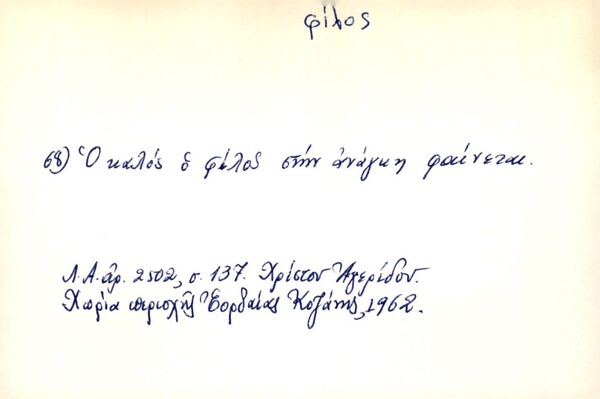 φίλος
68) Ὁ καλός ὁ φίλος στήν ἀνάγκη φαίνεται.
Λ.Α. ἀρ. 2502, σ. 137. Χρίστου Ἀγερίδου.
Χωρία περιοχῆς Ἑορδαίας Κοζάνης, 1962.